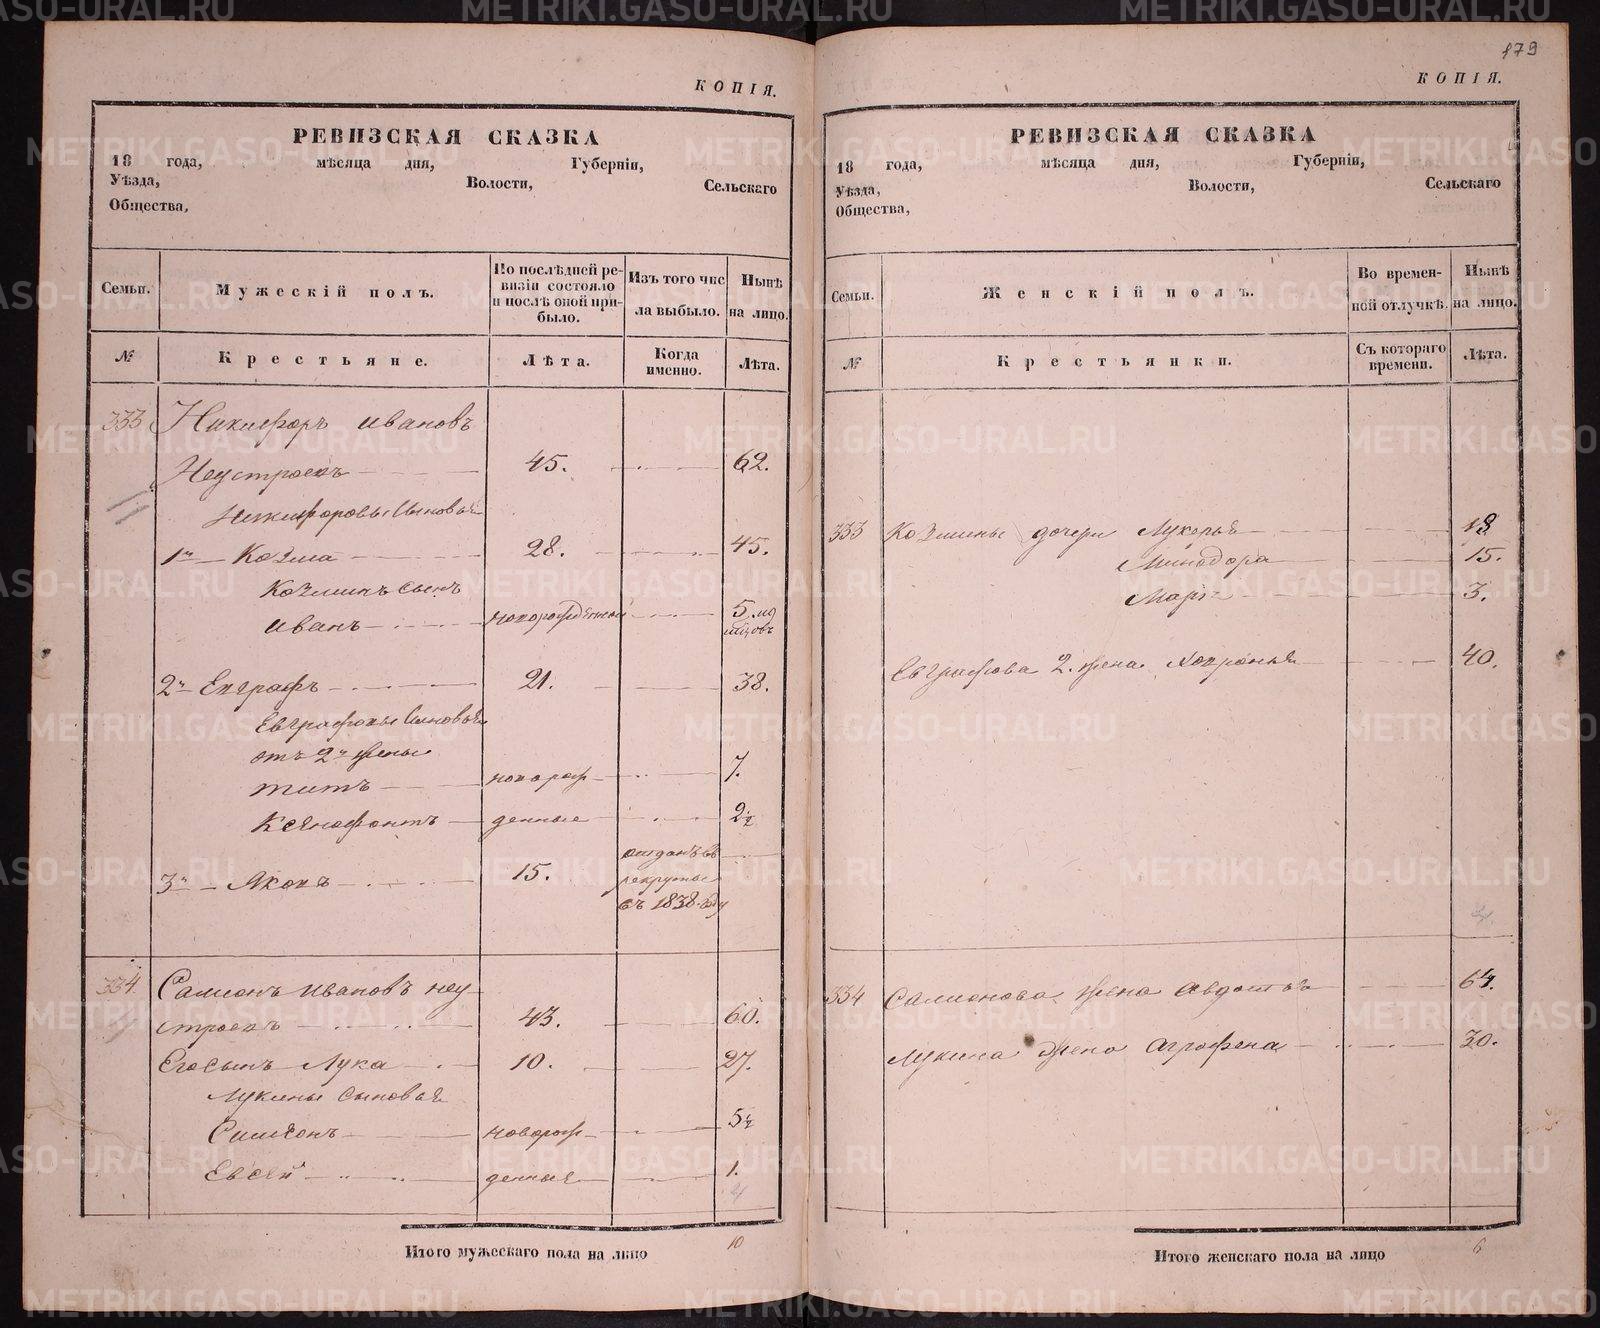 179
КОПІЯ.
РЕВИЗСКАЯ СКАЗКА
18 года, мѣсяца дня, Губерніи,
Уѣзда, Волости, Сельскаго
Общества,
Семьи. Мужескій полъ. По послѣдней ре-визіи состояло и послѣ оной при-было. Изъ того чис ла выбыло. Нынѣ на лицо.
№ Крестьяне. Лѣта. Когда именно. Лѣта.
333 Никифоръ Ивановъ
Неустроевъ 45. 62.
Никифоровы Сыновья
1й Козма 28. 45.
Козминъ Сынъ
Иванъ новорожденной 5. мѣсяцовъ
2й Евграфъ 21. 38.
Евграфовы Сыновья
отъ 2й жены
Титъ новорож 7.
Ксенофонтъ денные 2½
3й Яковъ 15. отданъ въ рекруты въ 1838. году
334 Самсонъ Ивановъ Неу
строевъ 43. 60.
Его Сынъ Лука 10. 27.
Лукины Сыновья
новорож 5½
Евсей денные 1.
4
Итого мужескаго пола на лицо 10
КОПІЯ.
РЕВИЗСКАЯ СКАЗКА
18 года, мѣсяца дня, Губерніи,
Уѣзда, Волости, Сельскаго
Общества,
Семьи. Женскій полъ. Во времен-ной отлучкѣ. Нынѣ на лицо.
№ Крестьянки. Съ котораго времени. Лѣта.
333 Козмины дочери Лукерья 18.
Минодора 15.
Марія 3.
Евграфова 2. жена Ховронья 40.
4.
334 Самсонова жена Авдотья 64.
Лукина жена Аграфена 30.
Итого женскаго пола на лицо 6
METRIKI.GASO-URAL.RU